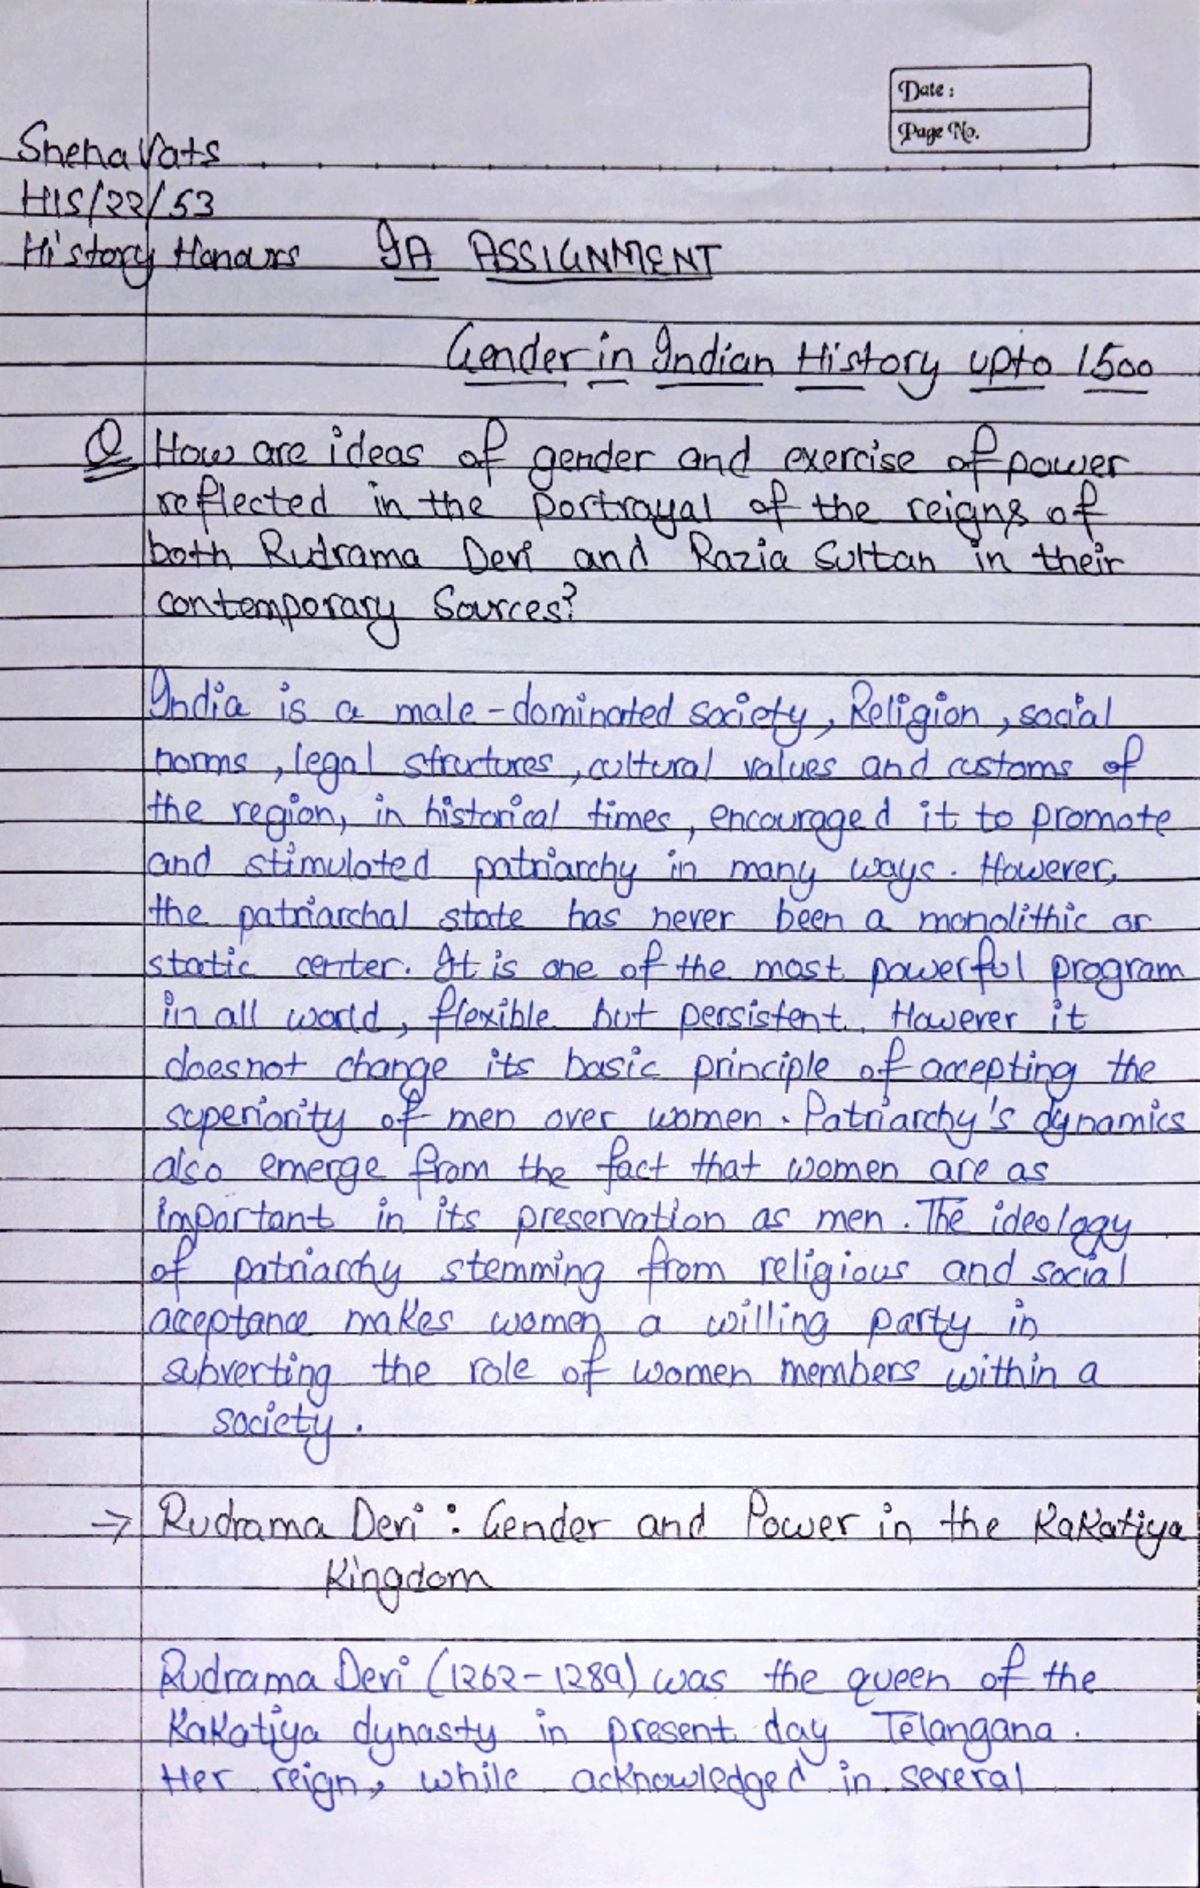 Date :
Page No.
Sneha Vats
HIS/22/53
History Honours IA ASSIGNMENT
Gender in Indian History upto 1500
Q How are ideas of gender and exercise of power
reflected in the portrayal of the reigns of
both Rudrama Devi and Razia Sultan in their
contemporary Sources?
India is a male-dominated society, Religion, social
norms, legal structures, cultural values and customs of
the region, in historical times, encouraged it to promote
and stimulated patriarchy in many ways. However,
the patriarchal state has never been a monolithic or
static center. It is one of the most powerful program
in all world, flexible but persistent. However it
doesnot change its basic principle of accepting the
superiority of men over women. Patriarchy's dynamics
also emerge from the fact that women are as
important in its preservation as men. The ideology
of patriarchy stemming from religious and social
acceptance makes women a willing party in
subverting the role of women members within a
society.
→ Rudrama Devi : Gender and Power in the Kakatiya
Kingdom
Rudrama Devi (1262-1289) was the queen of the
Kakatiya dynasty in present day Telangana.
Her reign, while acknowledged in several